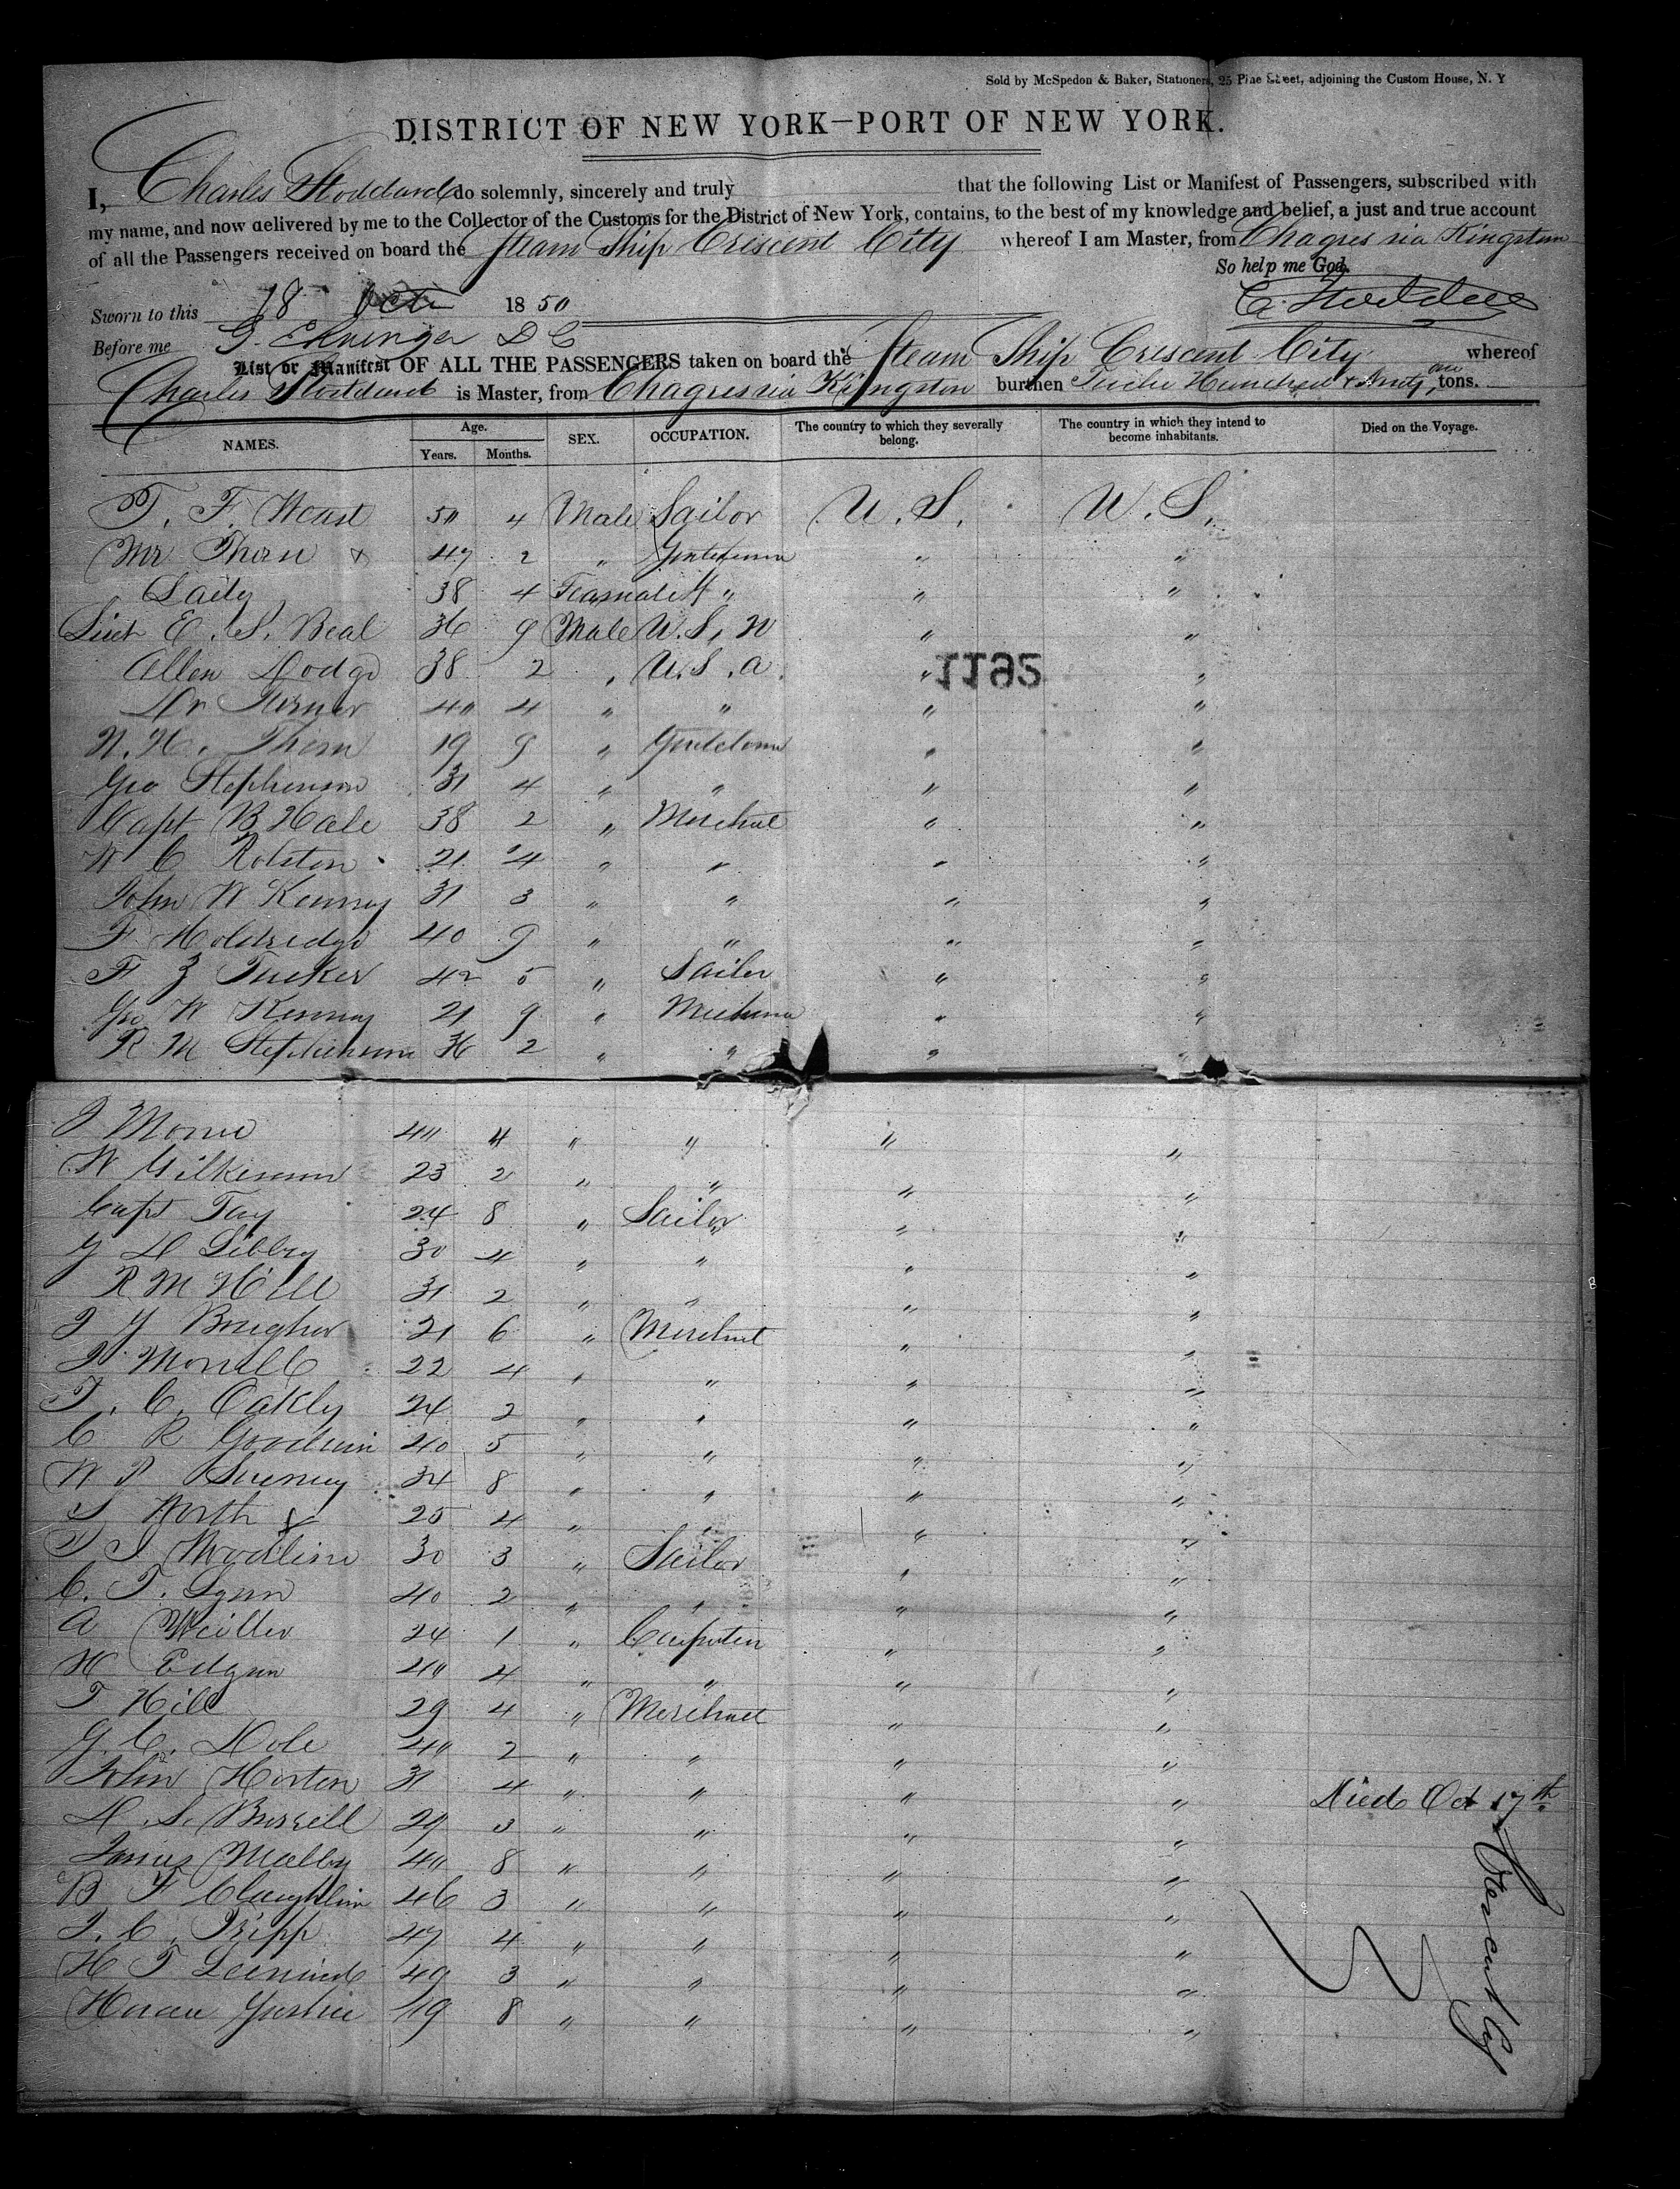 Sold by McSpedon & Baker, Stationers, 25 Pine Street, adjoining the Custom House, N. Y
DISTRICT OF NEW YORK—PORT OF NEW YORK.
I, Charles Stoddard do solemnly, sincerely and truly that the following List or Manifest of Passengers, subscribed with
my name, and now delivered by me to the Collector of the Customs for the District of New York, contains, to the best of my knowledge and belief, a just and true account
of all the Passengers received on board the Steam Ship Crescent City whereof I am Master, from Chagres via Kingston
So help me God.
C. Stoddard
Sworn to this 18 Oct 1850
Before me G. D C
List or Manifest OF ALL THE PASSENGERS taken on board the Steam Ship Crescent City whereof
Charles Stoddard is Master, from Chagres via Kingston burthen Twelve Hundred & Ninety one tons.
NAMES. Age. Years. Months. SEX. OCCUPATION. The country to which they severally belong. The country in which they intend to become inhabitants. Died on the Voyage.
T. F. West 50 4 Male Sailor U. S. U. S.
Mr Thorn & 47 2 " Gentleman " "
Lady 38 4 Feamale " " "
Lieut E. S. Beal 36 9 Male U. S. N " "
Allen Dodge 38 2 " U. S. A. " "
1195
Dr 40 4 " " " "
N. H. Thorn 19 9 " Gentleman " "
Geo Stephenson 31 4 " " " "
Capt B Hale 38 2 " Merchnt " "
W C Rolston 21 4 " " " "
John W Kenney 31 3 " " " "
F Holdredge 40 9 " " " "
F Z Tucker 42 5 " Sailor " "
Geo W Kenney 21 9 " " "
R M Stephenson 36 2 " " " "
J 40 4 " " " "
W Gilkerson 23 2 " " " "
Capt Tay 24 8 " Sailor " "
G D Libbey 30 4 " " " "
R M Hill 31 2 " " " "
J G 21 6 " Merchnt " "
J Morrell 22 4 " " " "
T. C. Oakly 24 2 " " " "
C R Goodwin 40 5 " " " "
W P Sweney 34 8 " " " "
S North 25 4 " " " "
T J Woodline 30 3 " Sailor " "
C. T. Lynn 40 2 " " " "
A Weiller 24 1 " Carpenter " "
H 40 4 " " " "
T Hill 29 4 " Merchnet " "
G. C. Dole 40 2 " " " "
John Horton 31 4 " " " " Died Oct 17th
D. S. Burrell 29 3 " " " "
James Malby 40 8 " " " "
B F Claughlin 46 3 " " " "
J. C. Tripp 47 4 " " " "
H T 49 3 " " " "
Horace 19 8 " " " "
Crescent City